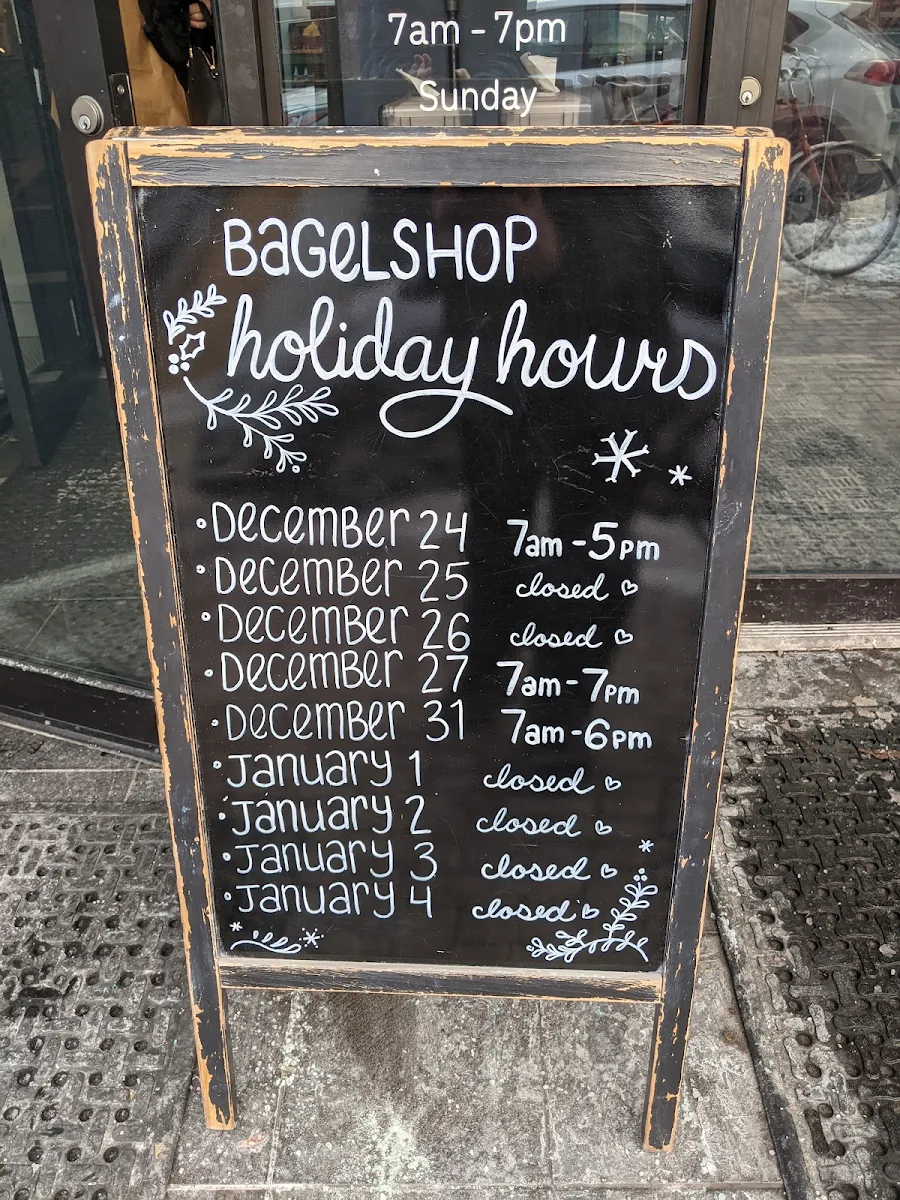 7am - 7pm
Sunday
BAGELSHOP
holiday hours
December 24 7am - 5pm
December 25 closed
December 26 closed
December 27 7am - 7pm
December 31 7am - 6pm
January 1 closed
January 2 closed
January 3 closed
January 4 closed